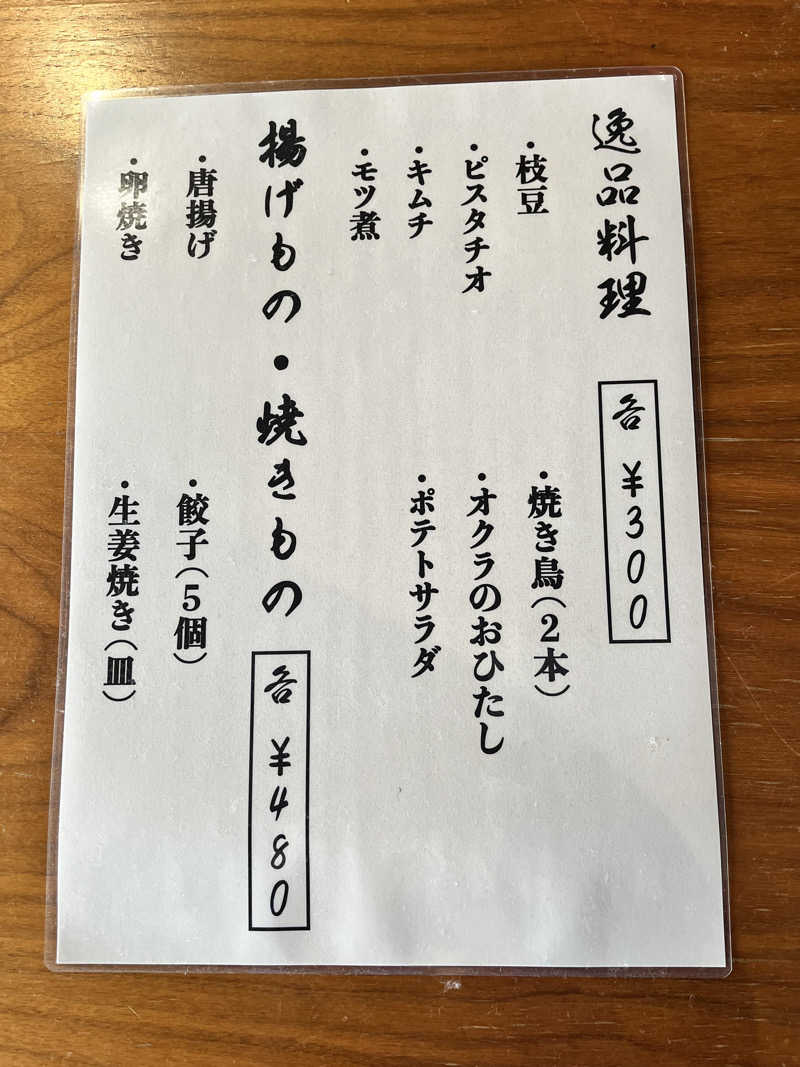 逸品料理 各 ¥300
・枝豆 ・焼き鳥(2本)
・ピスタチオ ・オクラのおひたし
・キムチ ・ポテトサラダ
・モツ煮
揚げもの・焼きもの 各 ¥480
・唐揚げ ・餃子(5個)
・卵焼き ・生姜焼き(皿)